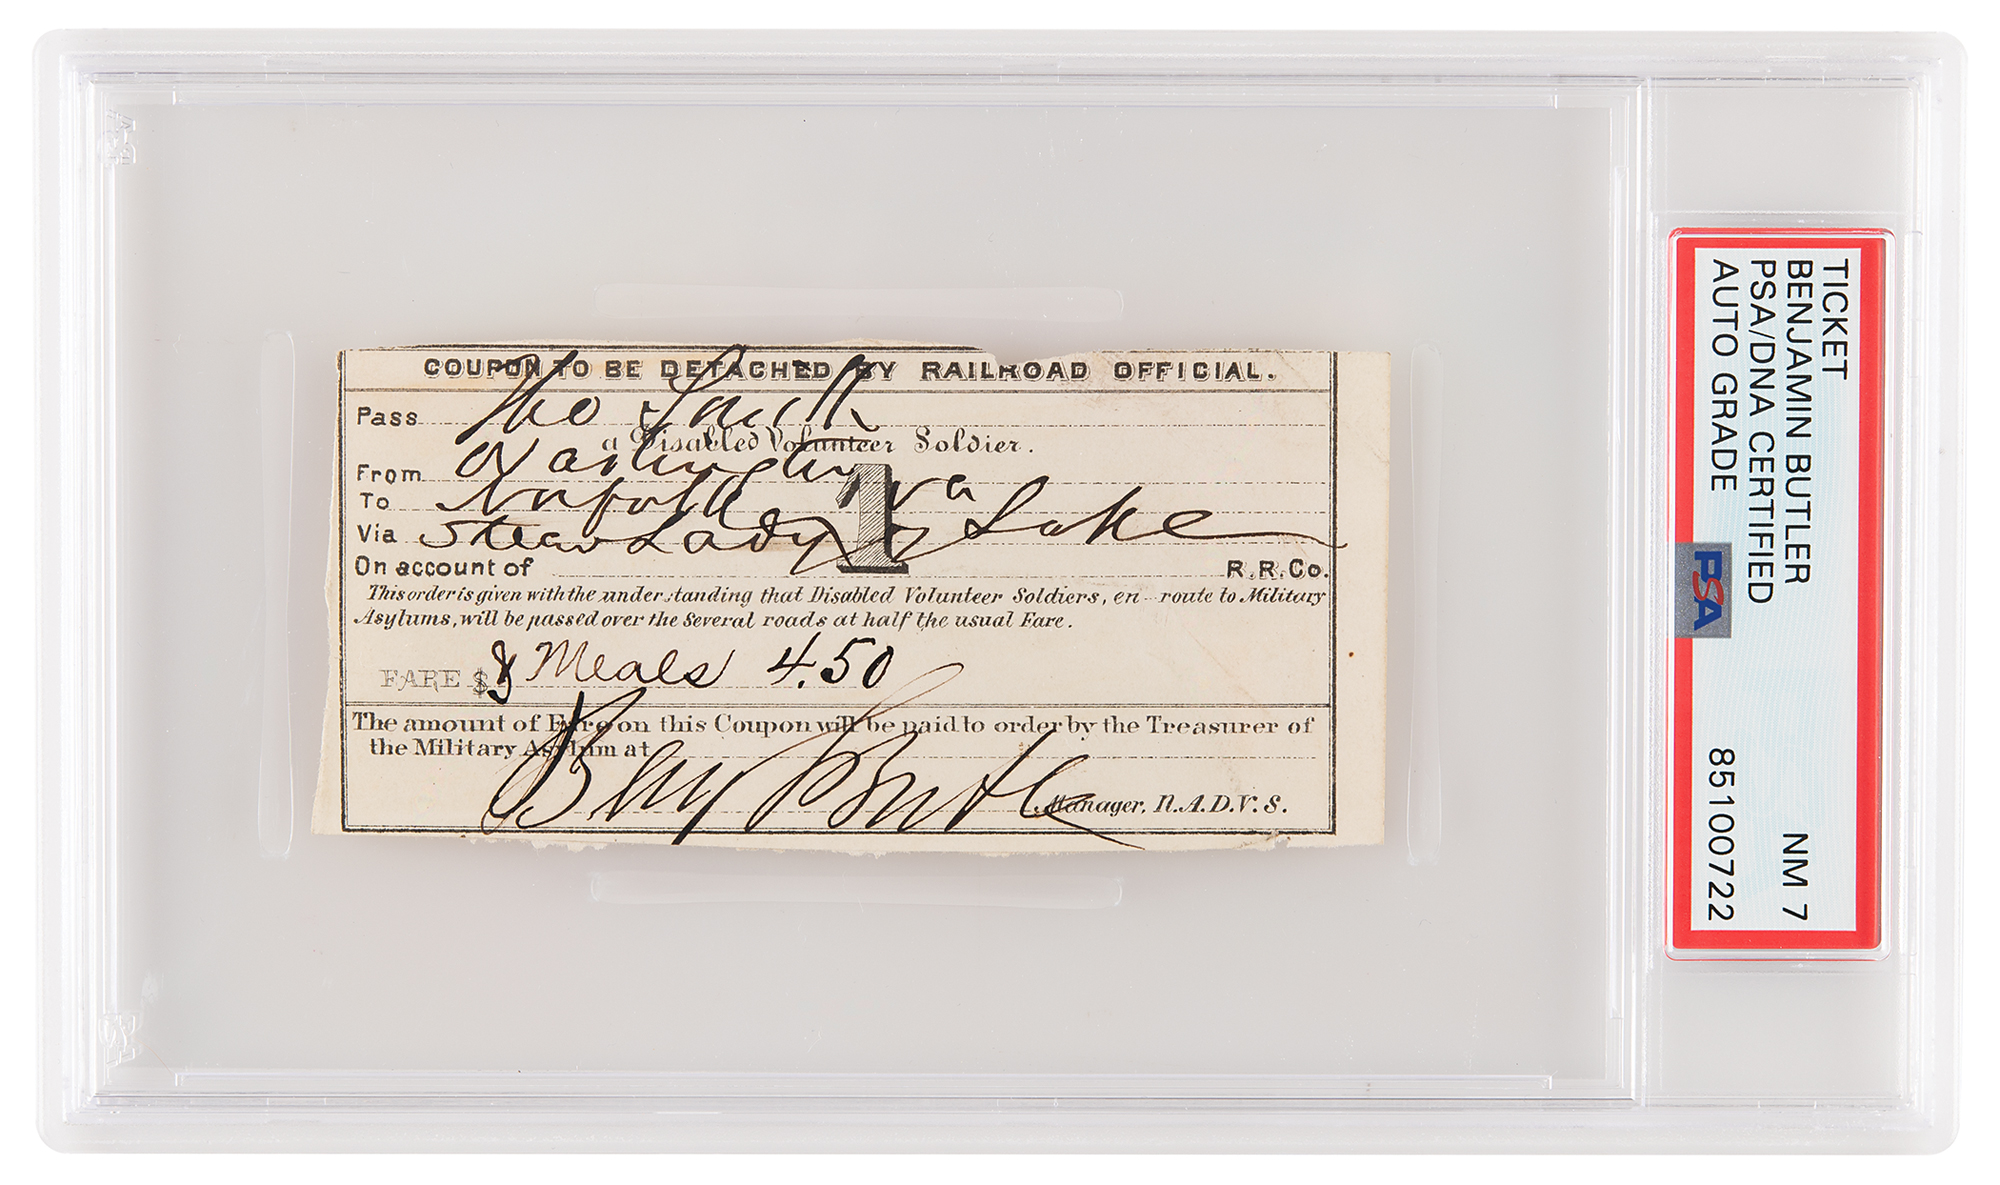 COUPON TO BE DETACHED BY RAILROAD OFFICIAL.
Pass Tho Smith
a Disabled Volunteer Soldier.
From Washington
To Norfolk Va
Via Steam Lady of Lake
On account of R.R.Co.
This order is given with the understanding that Disabled Volunteer Soldiers, en-route to Military
Asylums, will be passed over the Several roads at half the usual Fare.
FARE $ & Meals 4.50
The amount of Fare on this Coupon will be paid to order by the Treasurer of
the Military Asylum at
Benj Butler
Manager, N.A.D.V.S.
1
TICKET
BENJAMIN BUTLER
PSA/DNA CERTIFIED
AUTO GRADE
NM 7
85100722
PSA